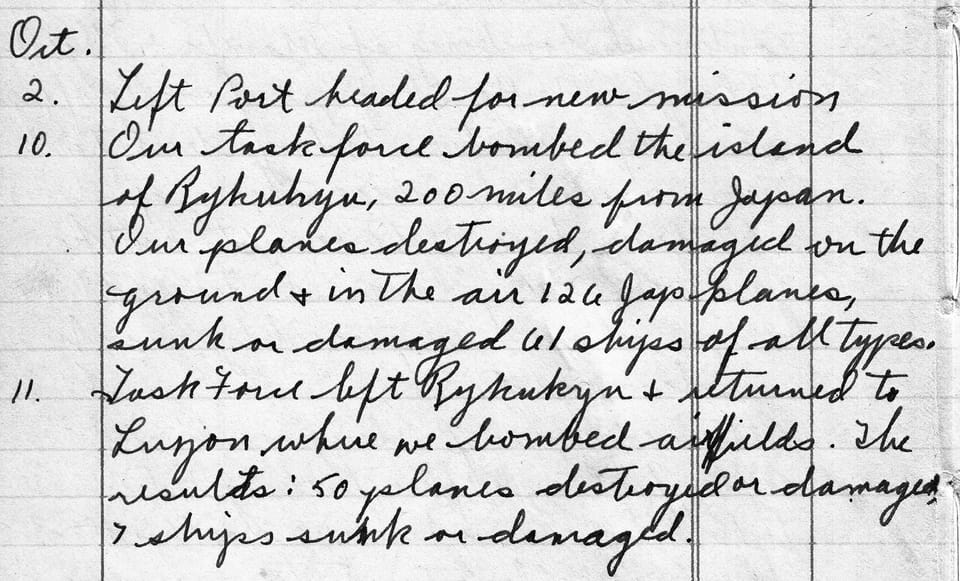 Oct.
2. Left Port headed for new mission
10. Our task force bombed the island
of Rykukyu, 200 miles from Japan.
Our planes destroyed, damaged on the
ground & in the air 126 Jap planes,
sunk or damaged 61 ships of all types.
11. Task Force left Rykukyu & returned to
Luzon where we bombed airfields. The
results: 50 planes destroyed or damaged,
7 ships sunk or damaged.